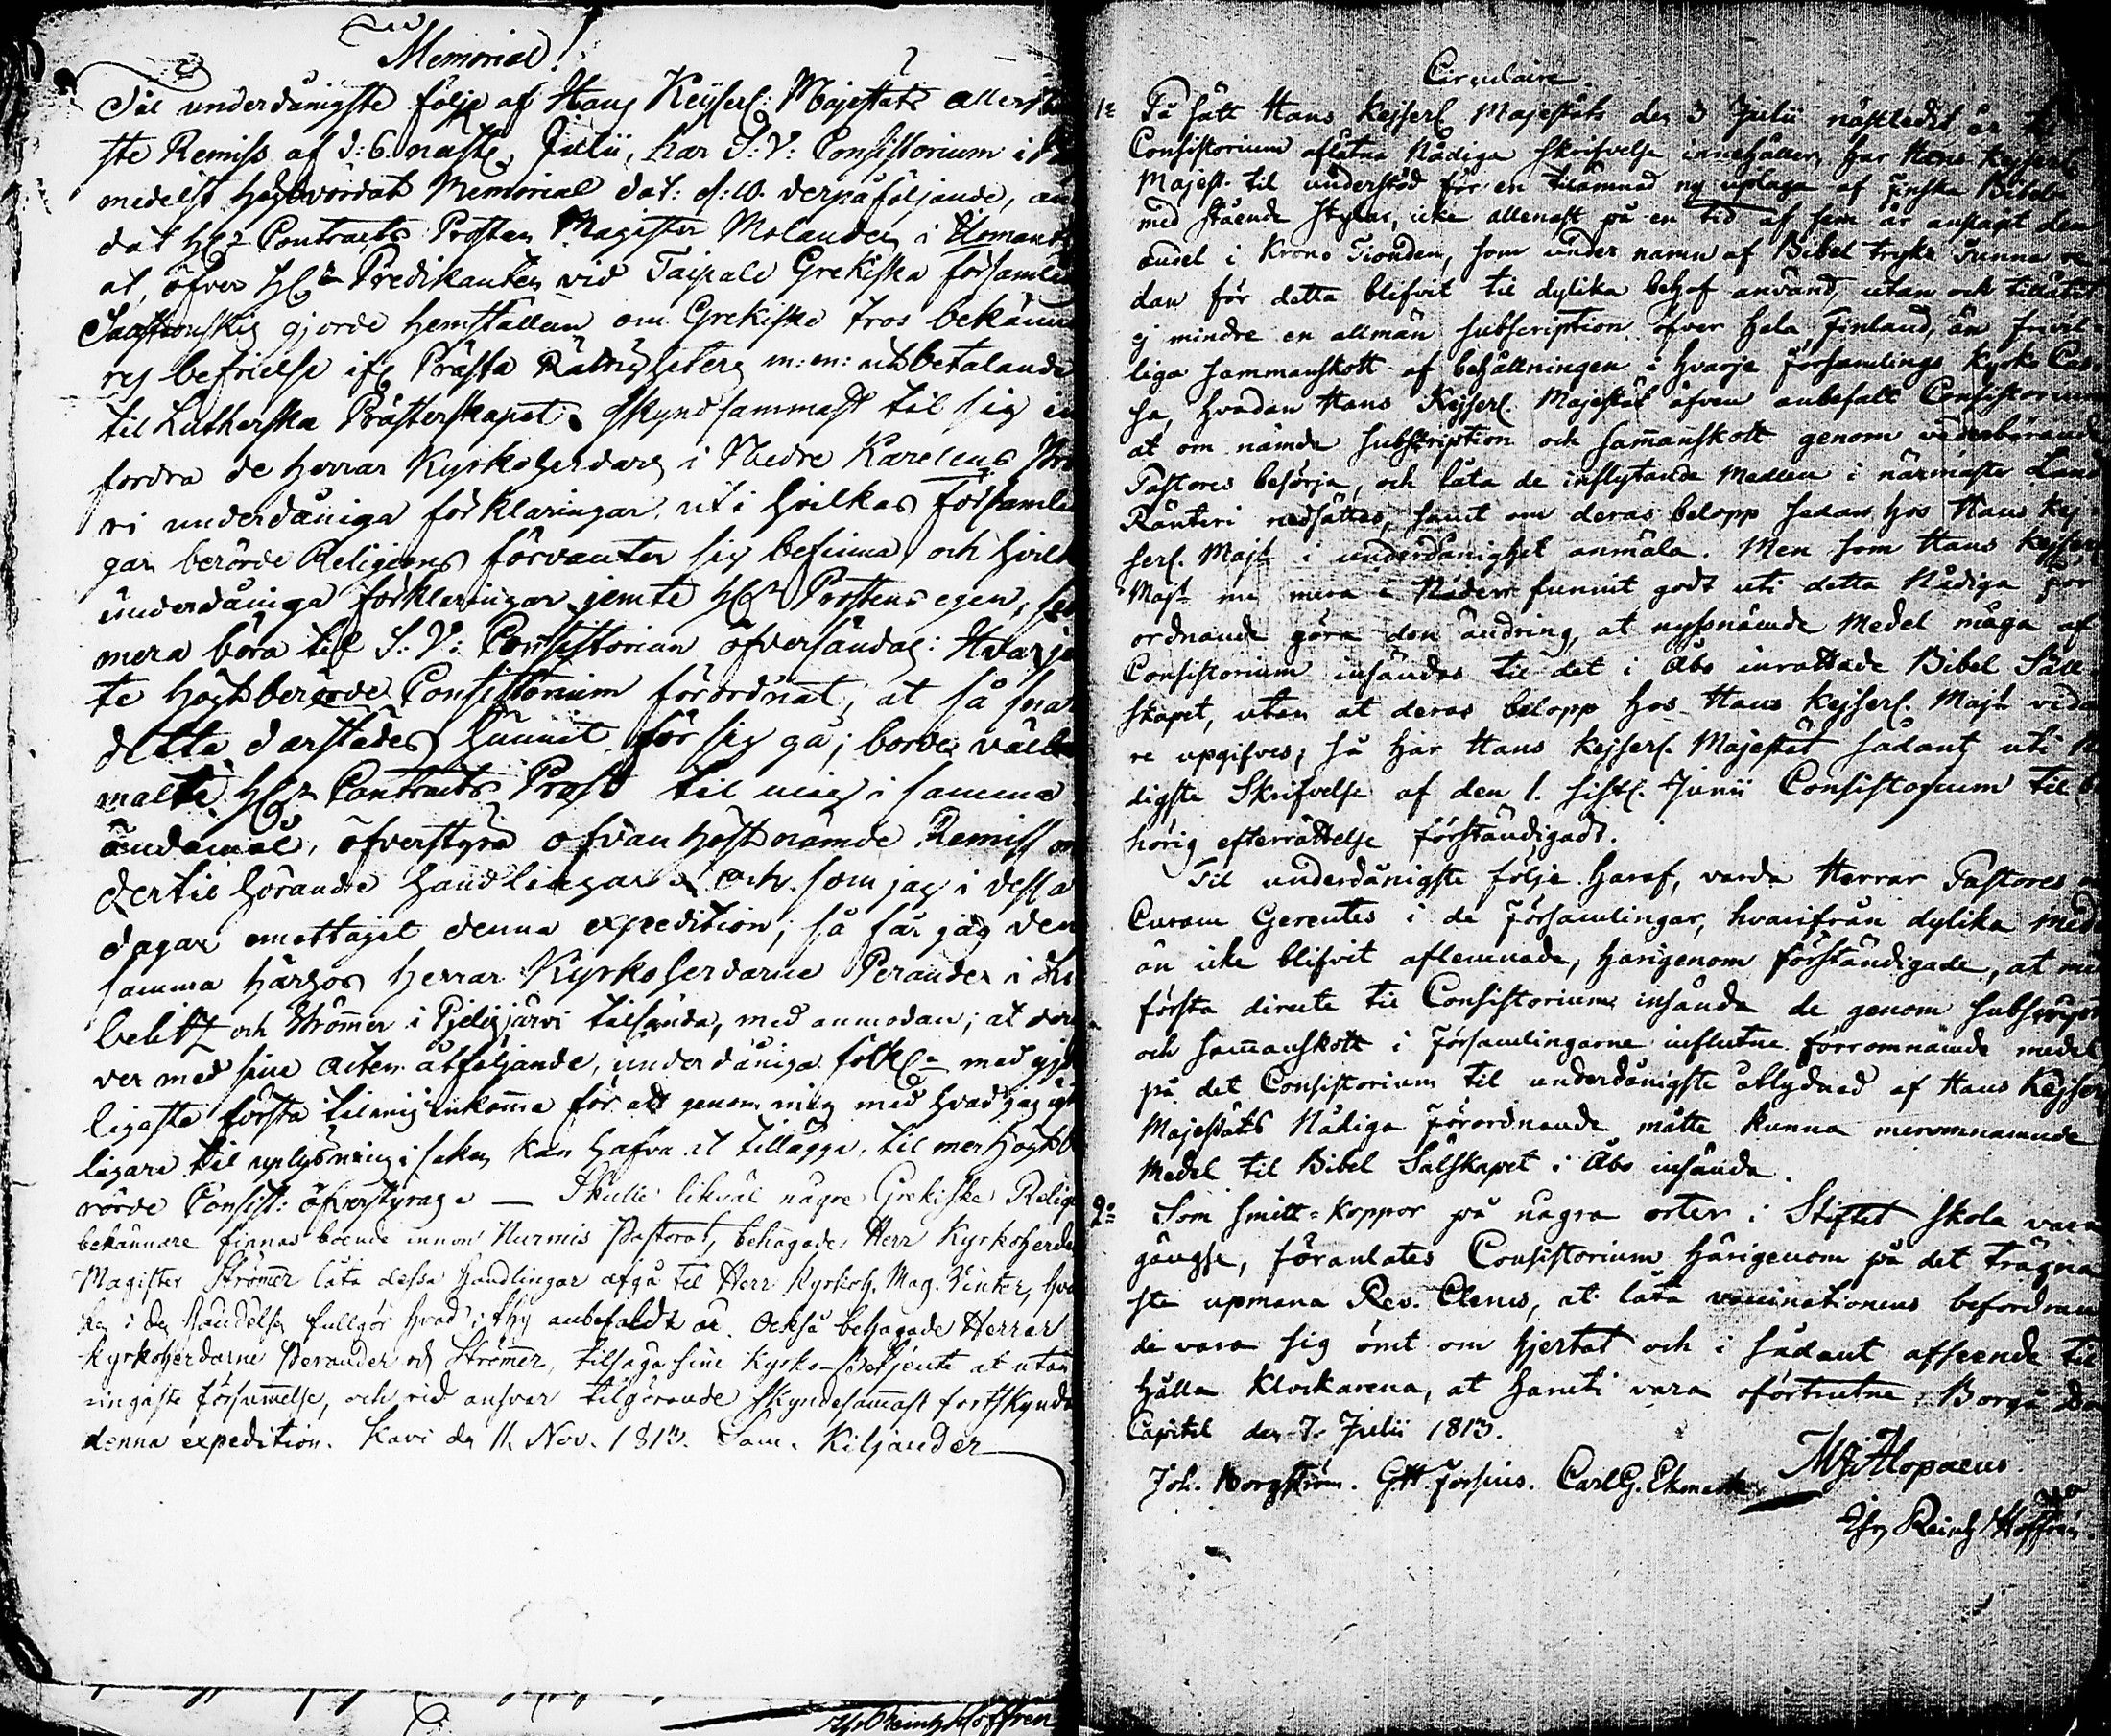 Memorial!
Til underdånigste följe af Hans Keijserl: Majestäts aller
ste Remiss af d: 6. nästl. Julii, har S: V: Consistorium i
medelst högvördat Memorial dat: d: 10. derpåföljande,
dat H:r Contracts Prosten Magister Molander i
at, öfver H:r Predikanten vid Taipale Grekiska församl
gjorde hemställan om Grekiska tros bekänn
res befrielse ifr. Prästa Rättigheters m: m: utbetalande
til Lutherska Prästerskapet, skyndsammast til sig in
fordra de Herrar Kyrkoherdars i Nedre Karelens Pro
ri underdåniga förklaringar, uti hvilkas Församlin
gar berörde Religions förvanter sig befinna, och hvilka
underdåniga förklaringar jemte H:r Prostens egen,
mera böra til S: V: Consistorium öfversändas: Hvarjem
te högtberörde Consistorium förordnat, at så snart
detta darstädes hunnit för sig gå; borde välbe
malte H:r Contracts Prost til mig i samma
ändamål, öfverstyra ofvan högstnämde Remiss
dertil hörande handlingar. Och som jag i dessa
dagar emottagit denna expedition; så får jag den
samma härhos Herrar Kyrkoherdarne Perander i
belitz och Strömer i Pjelisjärvi tilsända, med anmodan; at
ver med sine acten åtföljande, underdåniga förkl:r med
ligaste första til mig inkomma för att genom mig med hvad jag
ligare til uplysning i saken kan hafva at tillägga, til mer högtbe
rörde Consist: öfverstyras — Skulle likväl några Grekiske Religi
bekännare finnas boende innom Nurmis Pastorat, behagade Herr Kyrkoherde
Magister Strömer låta dessa Handlingar afgå til Herr Kyrkoh. Mag. Winter,
ken i den händelsen fullgör hvad i thy anbefaldt är. Också behagade Herrar
Kyrkoherdarne Perander och Strömer, tilsäga sine Kyrko-betjente at utan
ringaste försummelse, och vid ansvar tilgörande skyndesammast fortskynda
denna expedition. Kavi den 11. Nov. 1813. Sam. Kiljander
Hoffren
Circulaire
1:o På sätt Hans Kejserl. Majestäts den 3 Julii nästledit år til
Consistorium aflåtna Nådiga skrifvelse innehåller, har Hans Kejserl.
Majest. til understöd för en tilämnad ny uplaga af Finska Bibeln
med stående stylar, icke allenast på en tid af fem år anslagit den
andel i Krono Tionden, som under namn af Bibel tryks Tunna
dan för detta blifvit til dylika behof använd, utan och tillåtit
ej mindre en allmän subscription öfver hela Finland, än frivil-
liga sammanskott af behållningen i hvarje Församlings Kyrko Cas-
sa, hvadan Hans Kejserl. Majestät äfven anbefalt Consistorium
at om nämde subscription och sammanskott genom vederbörande
Pastores besörja, och låta de inflytande Medlen i närmaste Land
Ränteri nedsättas, samt om deras belopp sedan hos Hans Kej-
serl. Maj:t i underdånighet anmäla. Men som Hans Kejserl.
Maj:t nu mera i Nåder funnit godt uti detta Nådiga För
ordnande göra den ändring, at nyssnämde Medel måga af
Consistorium insändas til det i Åbo inrättade Bibel Säll-
skapet, utan at deras belopp hos Hans Kejserl. Maj:t vida
re upgifves; så har Hans Kejserl. Majestät sådant uti Nå
digste Skrifvelse af den 1. sistl. Junii Consistorium til be
hörig efterrättelse förständigadt.
Til underdånigste följe häraf, varda Herrar Pastores
Curam Gerentes i de Församlingar, hvarifrån dylika Medel
än icke blifvit aflemnade, härigenom förständigade, at med
första directe til Consistorium insända de genom subscription
och sammanskott i Församlingarne influtne förromnämde medel
på det Consistorium til underdånigste åtlydnad af Hans Kejserl.
Majestäts Nådiga Förordnande måtte kunna meromnämnde
Medel til Bibel Sälskapet i Åbo insända.
2:o Som smitt-koppor på några orter i Stiftet skola vara
gängse, föranlåtes Consistorium härigenom på det trägna
ste upmana Rev. Clerus, at låta vaccinationens befordran
de vara sig ömt om hjertat och i sådant afseende til
hålla Klockarena, at häruti vara oförtrutne. Borgå Dom
Capitel den 7. Julii 1813.
Joh. Borgström. G. H. Forsius. Carl G. Ekman M. J. Alopaeus
Reinh Hoffrén